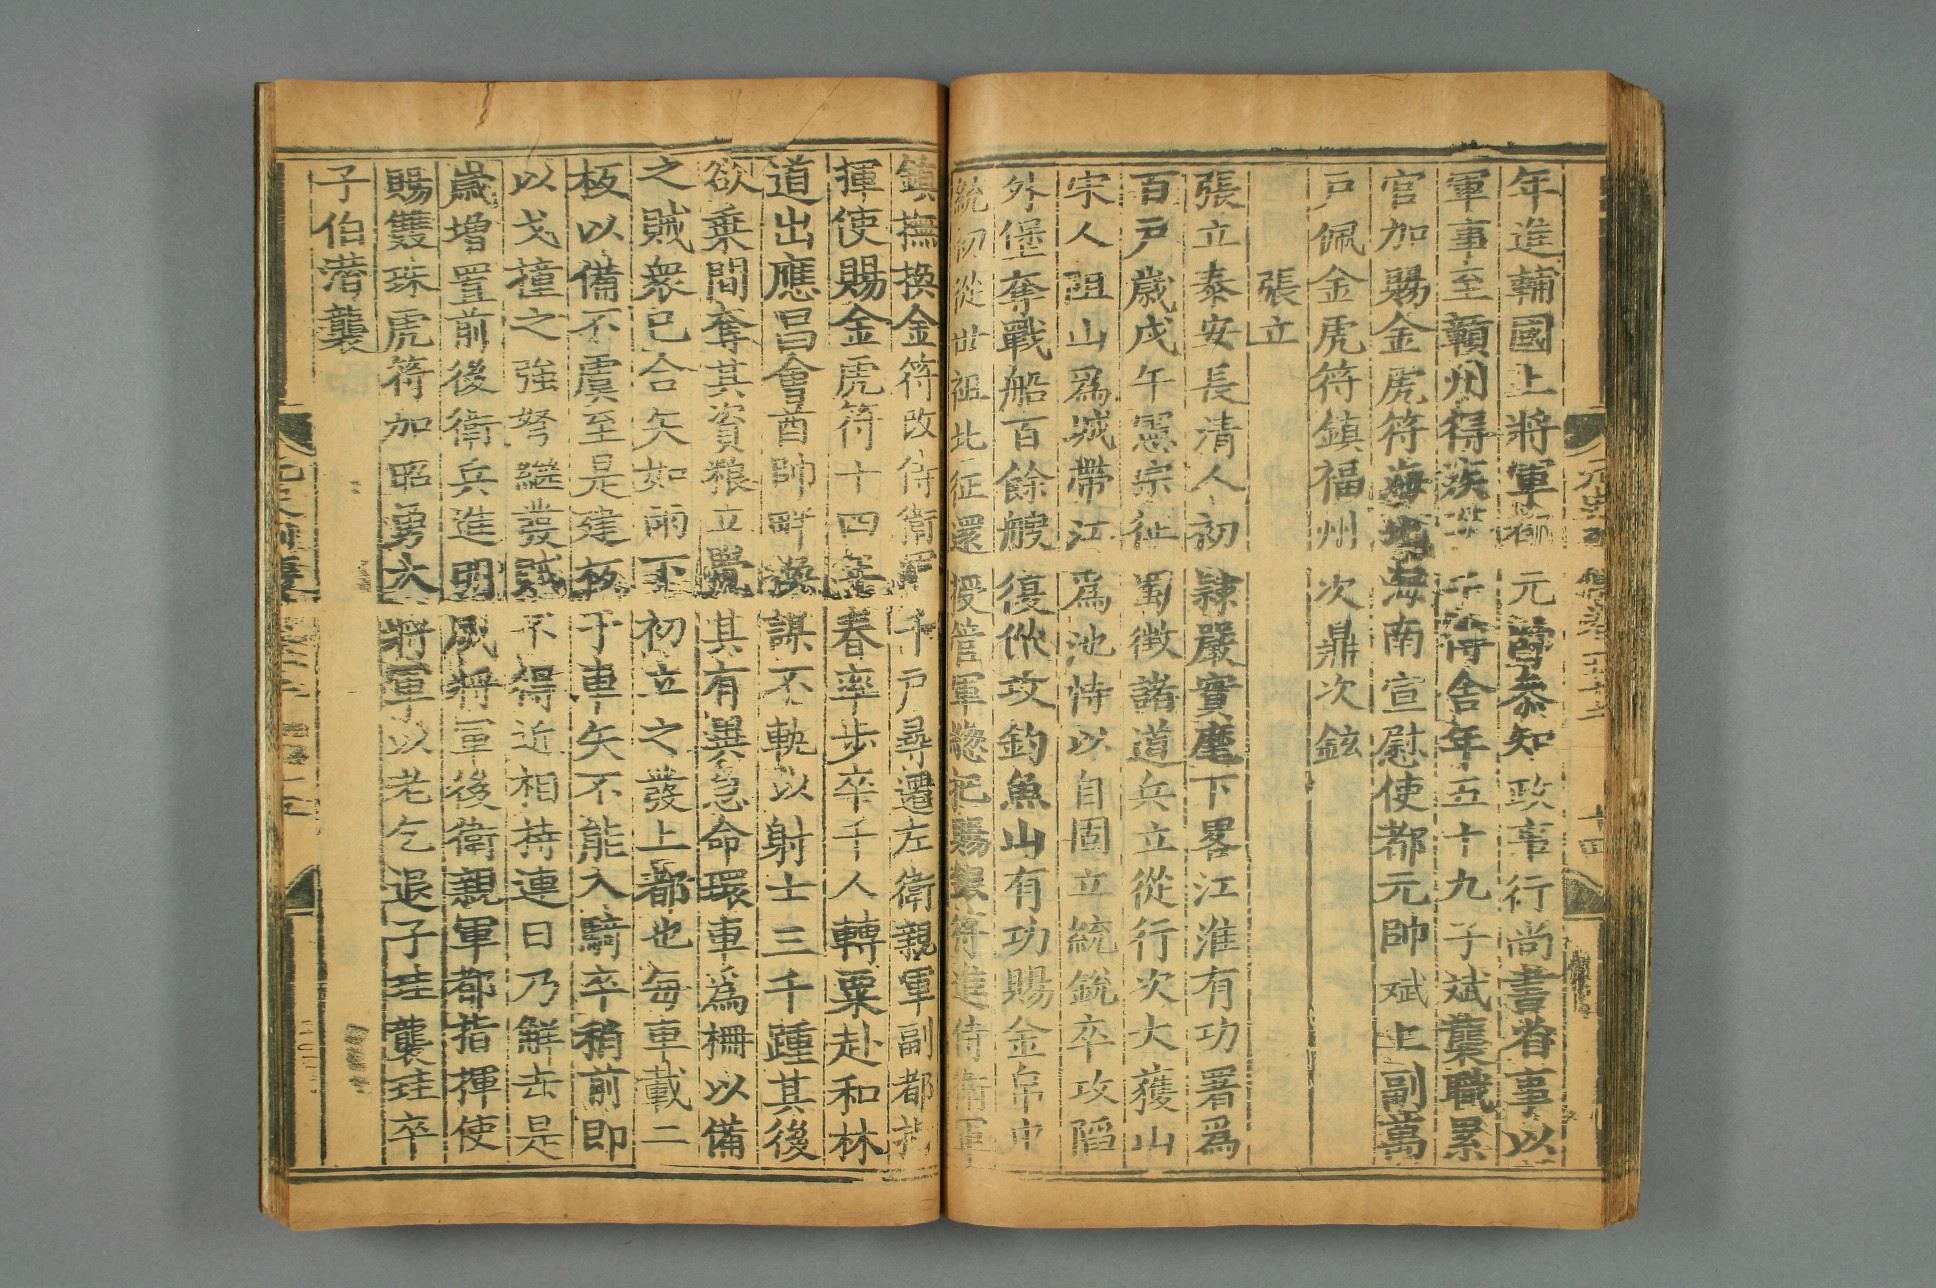 年進輔國上將軍 元 參知政事行尚書省事以
軍事至贛州得疾 年五十九子斌襲職累
官加賜金虎符海北海南宣慰使都元帥斌上副萬
戶佩金虎符鎮福州 次鼎次鉉
張立
張立泰安長清人初隷嚴實麾下畧江淮有功署爲
百戶歲戊午憲宗征蜀徵諸道兵立從行次大獲山
宋人阻山爲城帶江爲池恃以自固立統銳卒攻陷
外堡奪戰船百餘艘復從攻釣魚山有功賜金帛中
統初從世祖北征還授管軍緫把賜銀符進侍衛軍
鎮撫換金符改侍衛軍千戶尋遷左衛親軍副都指
揮使賜金虎符十四年春率步卒千人轉粟赴和林
道出應昌會酋帥 謀不軌以射士三千踵其後
欲乗間奪其資粮立覺其有異急命環車爲柵以備
之賊衆已合矢如雨下初立之發上都也每車載二
板以備不虞至是建板于車矢不能入騎卒稍前即
以戈撞之強弩繼發賊不得近相持連日乃解去是
歲增置前後衛兵進明威將軍後衛親軍都指揮使
賜雙珠虎符加昭勇大將軍以老乞退子珪襲珪卒
子伯潛襲